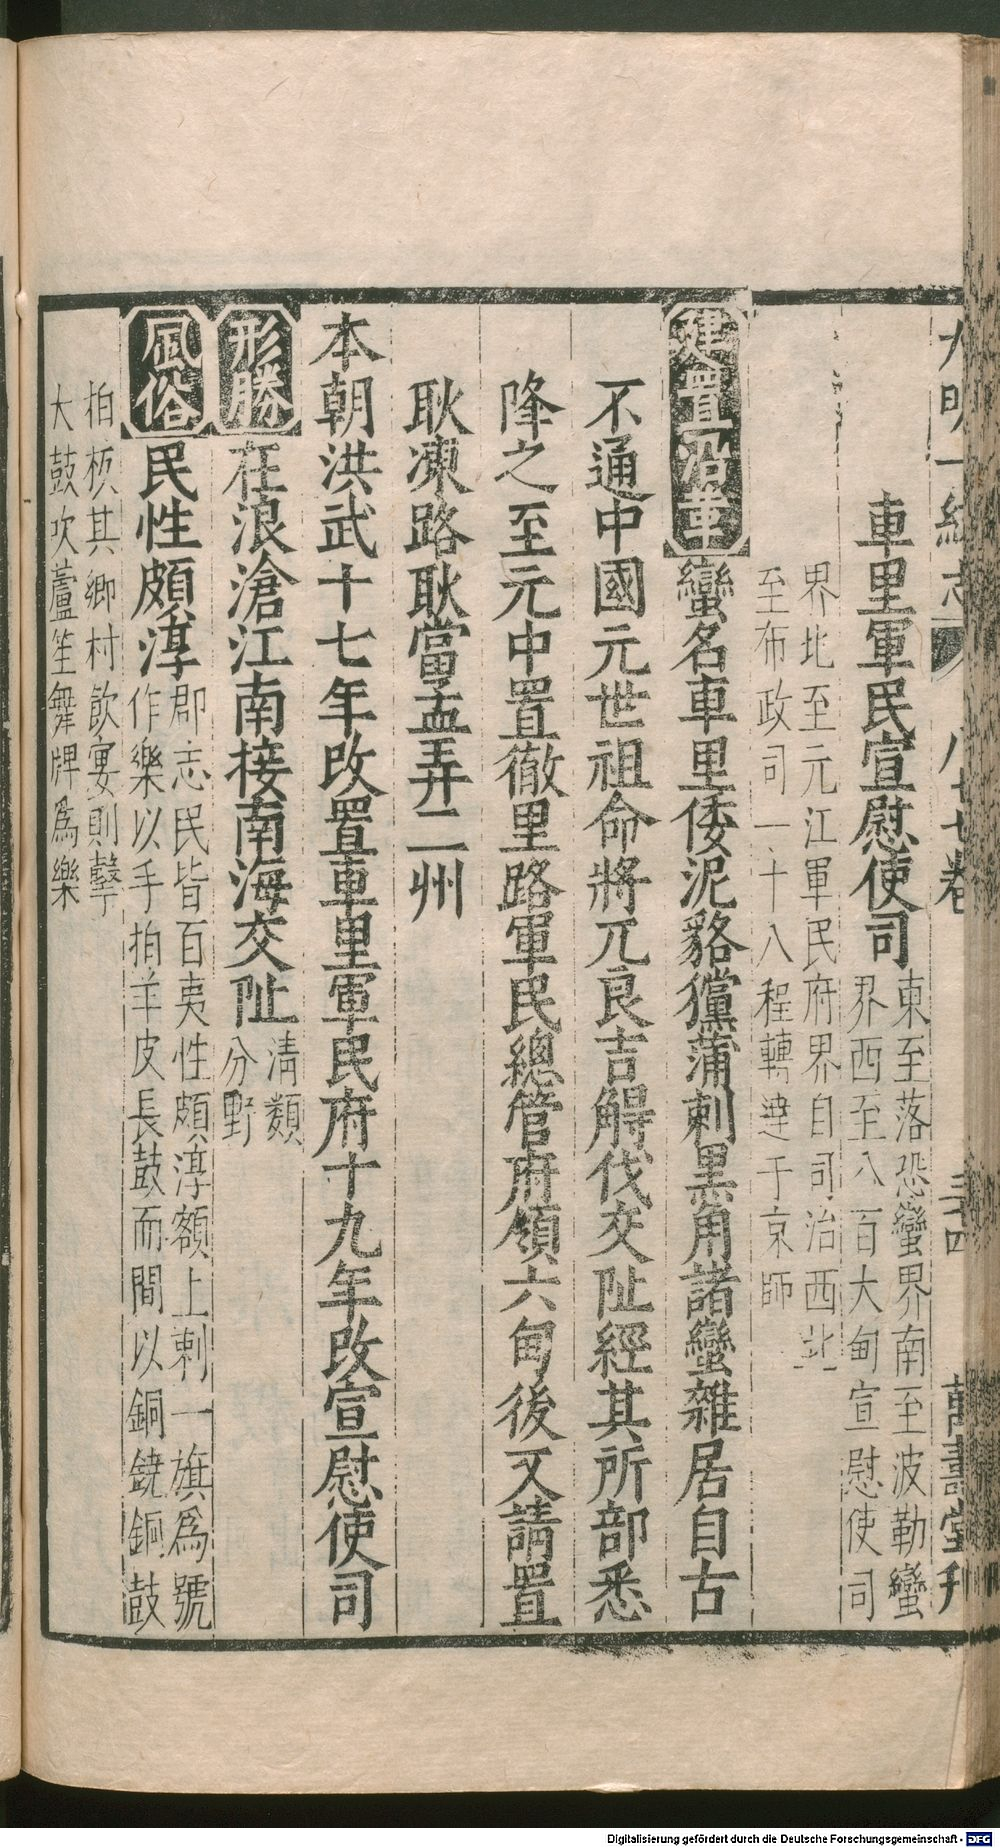 大明一統志 八十七卷 三十四 萬壽堂刊
車里軍民宣慰使司
東至落恐蠻界南至波勒蠻
界西至八百大甸宣慰使司
界北至元江軍民府界自司治西北
至布政司一十八程轉達于京師
建置沿革 蠻名車里倭泥貉獛蒲剌黑角諸蠻雜居自古
不通中國元世祖命將兀良吉䚟伐交阯經其所部悉
降之至元中置徹里路軍民總管府領六甸後又請置
耿凍路耿當孟弄二州
本朝洪武十七年改置車里軍民府十九年改宣慰使司
形勝 在浪滄江南接南海交阯
清類
分野
風俗 民性頗淳
郡志民皆百夷性頗淳額上剌一旗為號
作樂以手拍羊皮長鼓而間以銅鐃銅鼓
拍板其鄉村飲宴則擊
大鼓吹蘆笙舞牌為樂
Digitalisierung gefördert durch die Deutsche Forschungsgemeinschaft - DFG